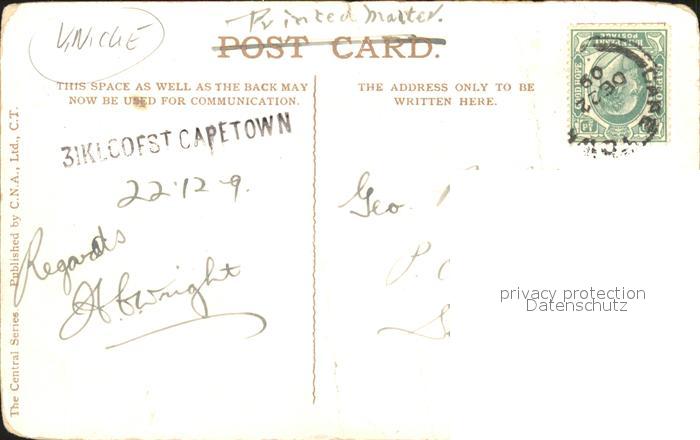 Printed Matter.
POST CARD.
THIS SPACE AS WELL AS THE BACK MAY
NOW BE USED FOR COMMUNICATION.
THE ADDRESS ONLY TO BE
WRITTEN HERE.
31KLOOFST CAPETOWN
22.12.9.
Regards
Wright
Geo.
P.
The Central Series. Published by C.N.A., Ltd., C.T.
privacy protection
Datenschutz